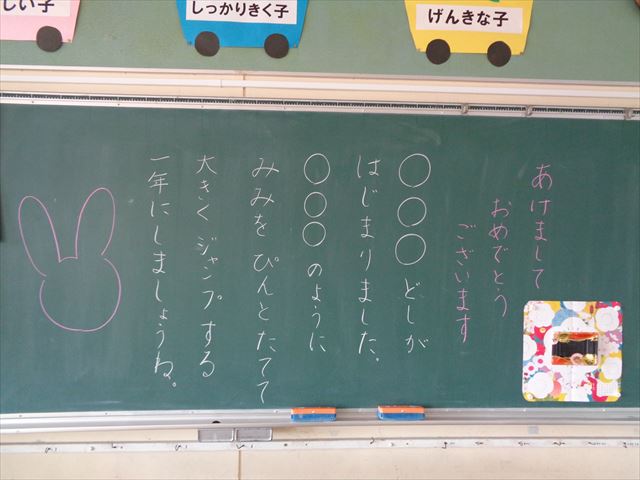 しい子
しっかりきく子
げんきな子
あけまして
おめでとう
ございます
○○○どしが
はじまりました。
○○○のように
みみをぴんとたてて
大きくジャンプする
一年にしましょうね。